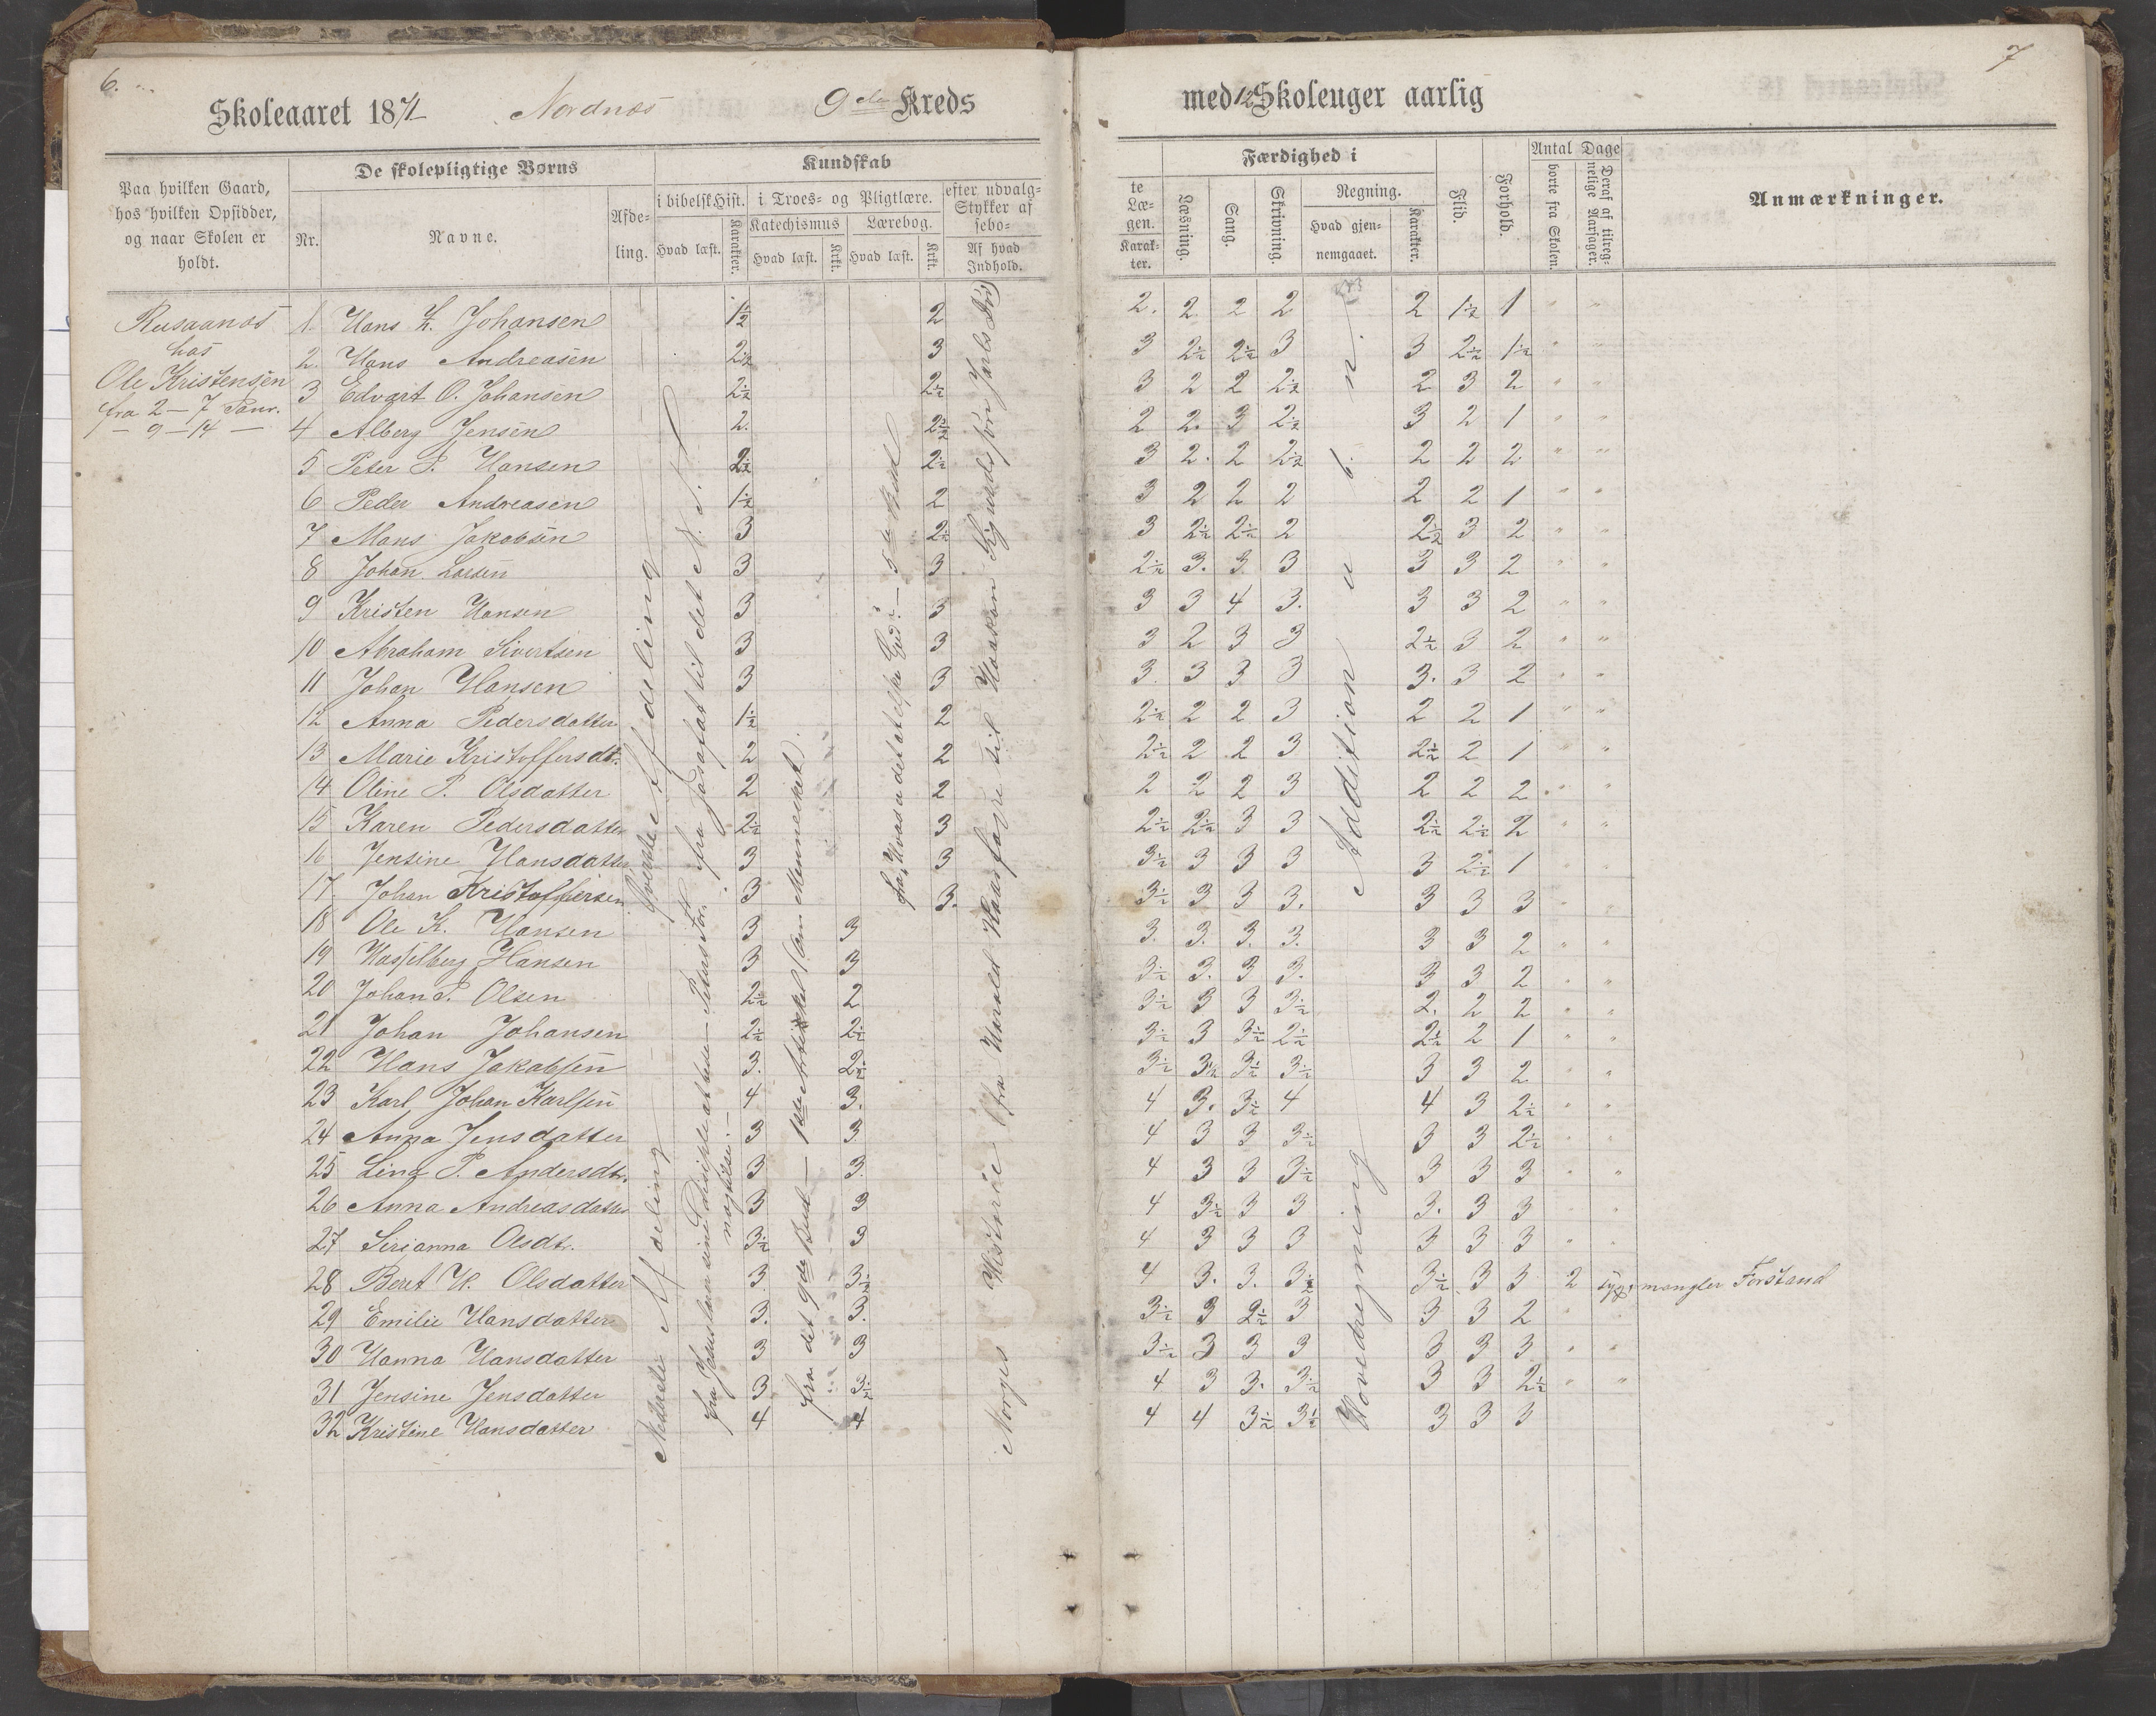 6.
7
Skoleaaret 1871 Nordnæs 9de Kreds
med 12 Skoleuger aarlig
Paa hvilken Gaard, hos hvilken Opsidder, og naar Skolen er holdt.
De skolepligtige Børns
Nr. Navne. Afdeling.
Kundskab
i bibelsk Hist. Hvad læst. Karakter.
i Troes- og Pligtlære.
Katechismus Hvad læst. Krkt.
Lærebog. Hvad læst. Krkt.
efter udvalgte Stykker af Læsebogen. Af hvad Indhold. Karakter.
Færdighed i
Læsning. Sang. Skrivning.
Regning. Hvad gjennemgaaet. Karakter.
Flid. Forhold.
Antal Dage
borte fra Skolen. Deraf af tilregnelige Aarsager.
Anmærkninger.
Rusaanæs
hos
Ole Kristensen
fra 2 – 7 Janr.
– 9 – 14 –
1. Hans L. Johansen 1½ 2 2. 2 2 2 2 1½ 1 " "
2. Hans Andreasen 2½ 3 3 2½ 2½ 3 3 2½ 1½ " "
3 Edvart O. Johansen 2½ 2½ 3 2 2 2½ 2 3 2 " "
4 Alberg Jensen 2. 2½ 2 2. 3 2½ 3 2 1 " "
5 Peter P. Hansen 2½ 2½ 3 2. 2 2½ 2 2 2 " "
6 Peder Andreasen 1½ 2 3 2 2 2 2 2 1 " "
7 Mons Jakobsen 3 2½ 3 2½ 2½ 2 2½ 3 2 " "
8 Johan Larsen 3 3 2½ 3. 3 3 3 3 2 " "
9 Kristen Hansen 3 3 3 3 4 3. 3 3 2 " "
10 Abraham Sivertsen 3 3 3 2 3 3 2½ 3 2 " "
11 Johan Hansen 3 3 3. 3 3 3 3. 3 2 " "
12 Anna Pedersdatter 1½ 2 2½ 2 2 3 2 2 1 " "
13 Marie Kristoffersdt. 2 2 2½ 2 2 3 2½ 2 1 " "
14 Oline P. Olsdatter 2 2 2 2 2 3 2 2 2 " "
15 Karen Pedersdatter 2½ 3 2½ 2½ 3 3 2½ 2½ 2 " "
16 Jensine Hansdatter 3 3 3½ 3 3 3 3 2½ 1 " "
17 Johan Kristoffersen 3 3. 3½ 3 3 3. 3 3 3 " "
18 Ole K. Hansen 3 3 3. 3. 3. 3. 3 3 2 " "
19 Hasselberg Hansen 3 3 3½ 3. 3 3. 3 3 2 " "
20 Johan P. Olsen 2½ 2 3½ 3 3 3½ 2. 2 2 " "
21 Johan Johansen 2½ 2½ 3½ 3 3½ 2½ 2½ 2 1 " "
22 Hans Jakobsen 3. 2½ 3½ 3½ 3½ 3½ 3 3 2 " "
23 Karl Johan Karlsen 4 3. 4 3. 3½ 4 4 3 2½ " "
24 Anna Jensdatter 3 3 4 3 3 3½ 3 3 2½ " "
25 Lina P. Andersdt. 3 3. 4 3 3 3½ 3 3 3 " "
26 Anna Andreasdatter 3 3 4 3½ 3 3 3. 3 3 " "
27 Sirianna Olsdt. 3½ 3 4 3 3 3 3 3 3 " "
28 Beret H. Olsdatter 3 3½ 4 3. 3. 3½ 3½ 3 3 2 syg. mangler Forstand
29 Emilie Hansdatter 3. 3. 3½ 3 2½ 3 3 3 2 " "
30 Hanna Hansdatter 3 3 3½ 3 3 3 3 3 3 " "
31 Jensine Jensdatter 3 3½ 4 3 3. 3½ 3 3 2½ " "
32 Kristine Hansdatter 4 4 4 4 3½ 3½ 3 3 3
Øverste Afdeling
Nederste Afdeling
fra Josafat til det N. T.
fra det 9de Bud – 1ste Artikkel (om Mennesket).
fra Hvad er det at elske Gud? – 5te Bud
Norges Historie fra Harald Haarfagre til Haakon
Addition
Hovedregning